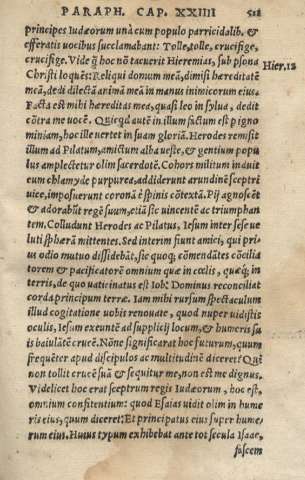 PARAPH. CAP. XXIIII 512
principes Iudæorum unà cum populo parricidali. &
efferatis uocibus succlamabant: Tolle, tolle, crucifige,
crucifige. Vide q̃ hoc nõ tacuerit Hieremias, sub psona
Christi loquẽs: Reliqui domum meã, dimisi hæreditatẽ
meã, dedi dilectã animã meã in manus inimicorum eius.
Facta est mihi hæreditas mea, quasi leo in sylua, dedit
cõtra me uocẽ. Quicqd autẽ in illum factum est p igno
miniam, hoc ille uertet in suam gloriã. Herodes remisit
illum ad Pilatum, amictum alba ueste, & gentium popu
lus amplectetur olim sacerdotẽ. Cohors militum induit
eum chlamyde purpurea, addiderunt arundinẽ sceptri
uice, imposuerunt coronã è spinis cõtextã. Pij agnoscẽt
& adorabũt regẽ suum, etiã sic uincentẽ ac triumphan
tem. Colludunt Herodes ac Pilatus, Iesum inter sese ue
luti sphærã mittentes. Sed interim fiunt amici, qui pri
us odio mutuo dissidebãt, sic quoq; cõmendãtes cõcilia
torem & pacificatorẽ omnium quæ in cœlis, quæq; in
terris, de quo uaticinatus est Iob: Dominus reconciliat
corda principum terræ. Iam mihi rursum spectaculum
illud cogitatione uobis renouate, quod nuper uidistis
oculis, Iesum exeuntẽ ad supplicij locum, & humeris su
is baiulãtẽ crucẽ. Nõne significarat hoc futurum, quum
frequẽter apud discipulos ac multitudinẽ diceret: Qui
non tollit crucẽ suã & sequitur me, non est me dignus.
Videlicet hoc erat sceptrum regis Iudæorum, hoc est,
omnium confitentium: quod Esaias uidit olim in hume
ris eius, quum diceret: Et principatus eius super hume
rum eius. Huius typum exhibebat ante tot secula Isaac,
fascem
Hier.12